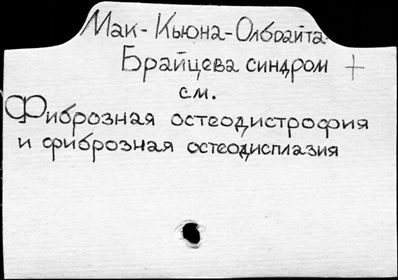 Мак-Кьюна-Олбрайта-
Брайцева синдром +
см.
Фиброзная остеодистрофия
и фиброзная остеодисплазия